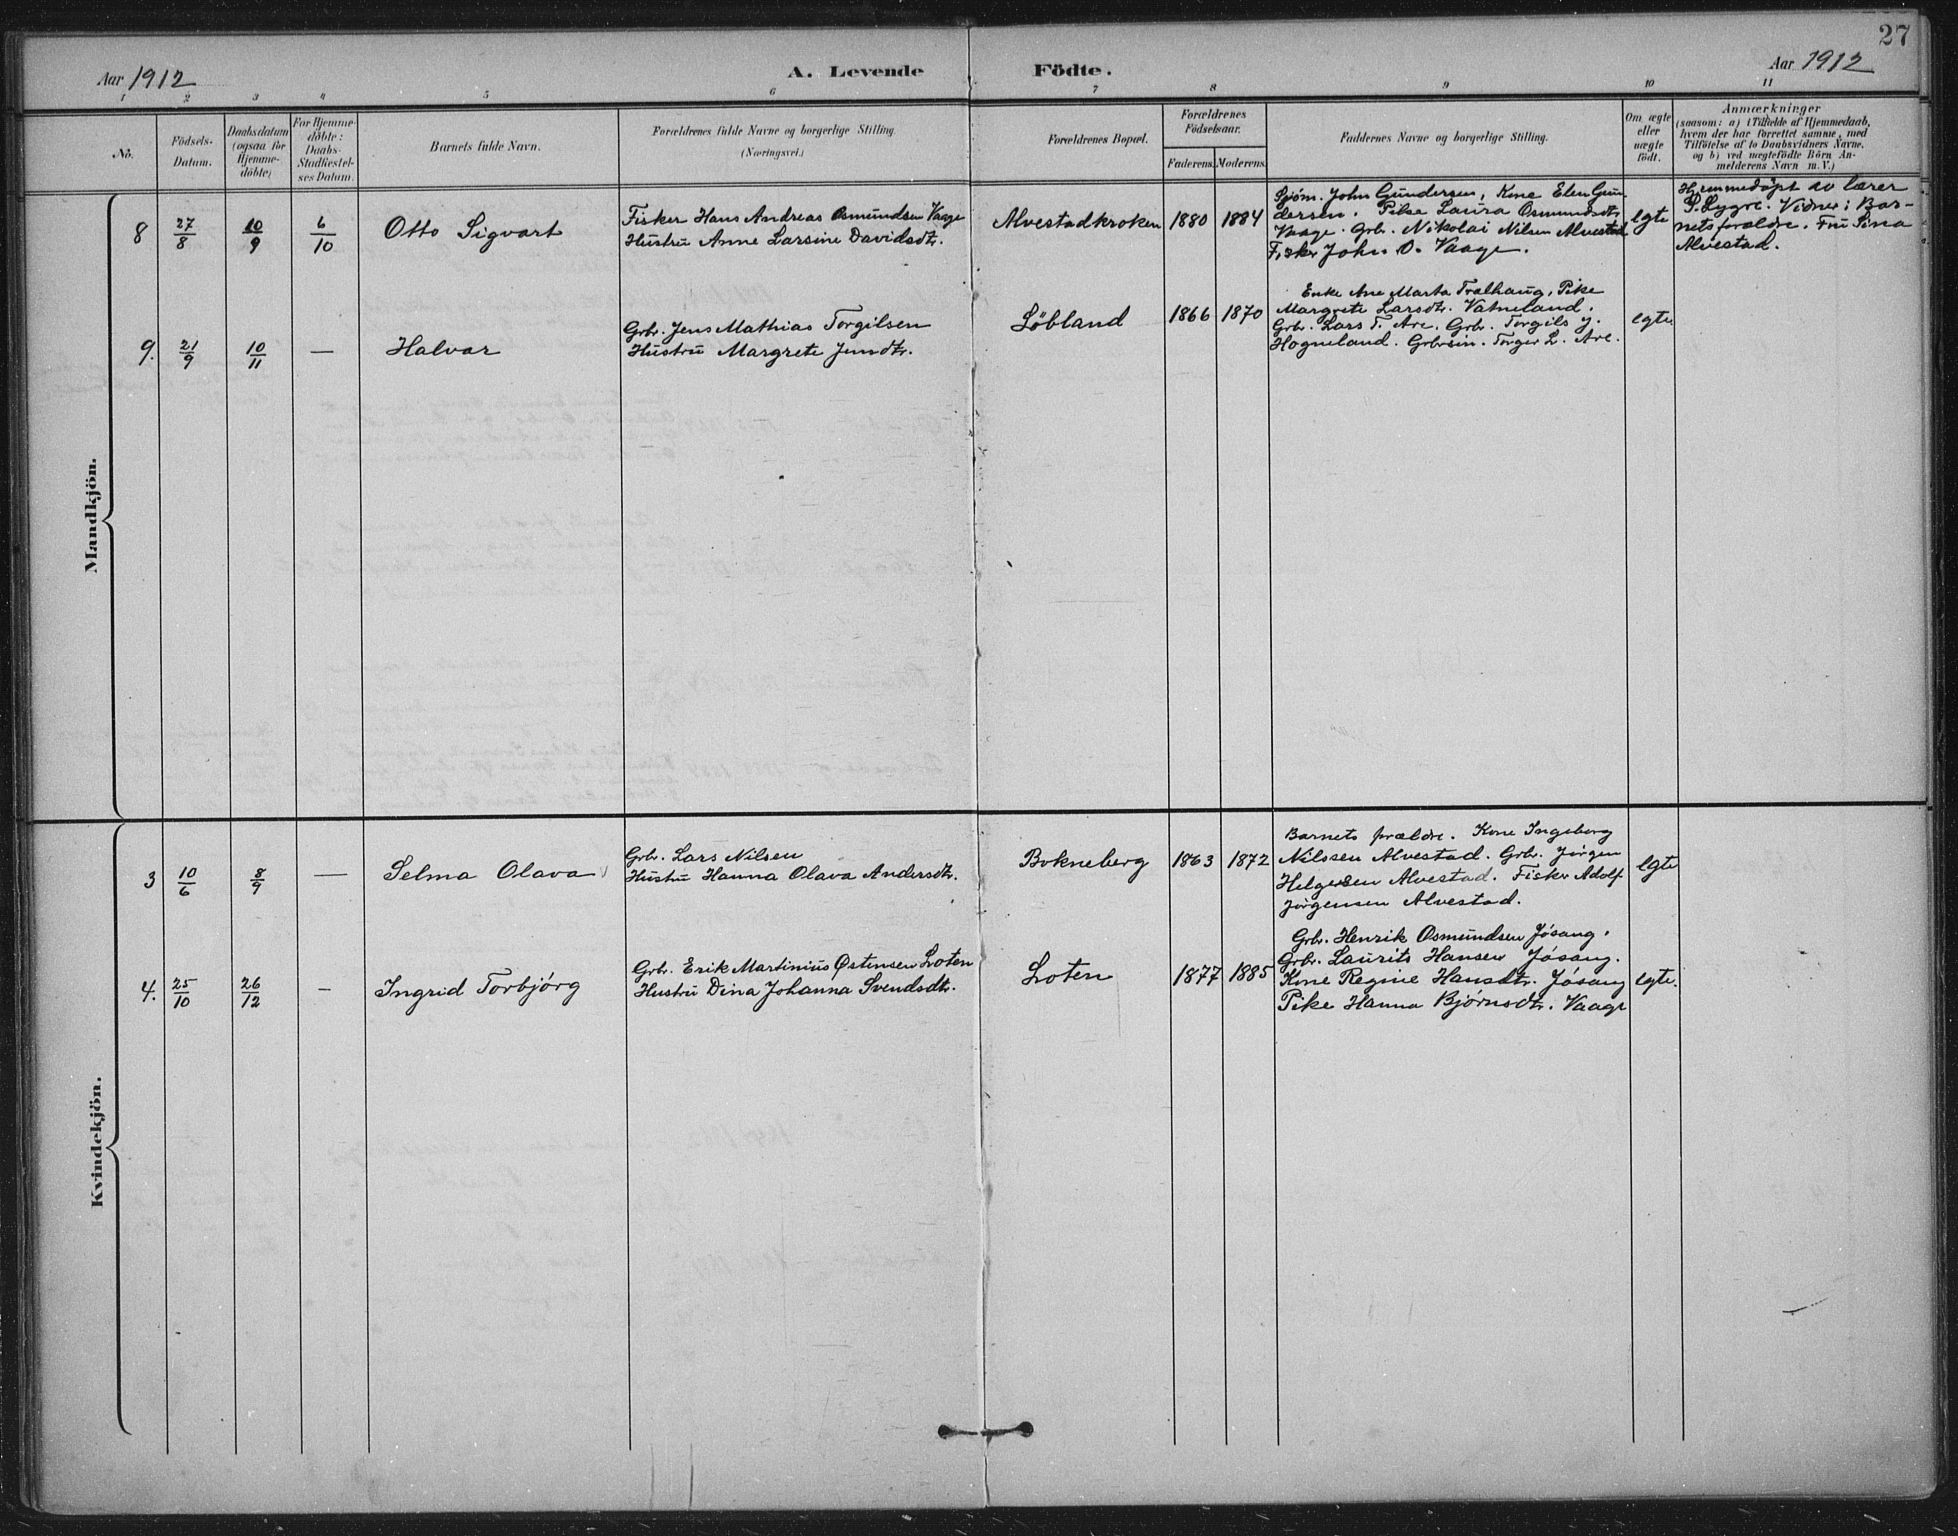 27
Aar 1912
A. Levende Födte.
Aar 1912
1 2 3 4 5 6 7 8 9 10 11
No.
Födsels-
Datum.
Daabsdatum
(ogsaa for
Hjemme-
döbte)
For Hjemme-
döbte:
Daabs-
Stadfæstel-
ses Datum.
Barnets fulde Navn.
Forældrenes fulde Navne og borgerlige Stilling.
(Næringsvei.)
Forældrenes Bopæl.
Forældrenes
Födselsaar.
Faderens. Moderens.
Faddernes Navne og borgerlige Stilling.
Om ægte
eller
uægte
födt.
Anmærkninger
(saasom: a) i Tilfælde af Hjemmedaab,
hvem der har forrettet samme, med
Tilföielse af to Daabsvidners Navne,
og b) ved uægtefödte Börn An-
melderens Navn m. V.)
Mandkjön.
8 27/8 10/9 6/10 Otto Sigvart
Fisker Hans Andreas Osmundsen Vaage
Hustru Anne Larsine Davidsdtr.
Alvestadkroken 1880 1884
Sjöm. John Gundersen, Kone Elen Gun-
dersen. Pike Laura Osmundsdtr
Vaage. Grb. Nikolai Nilsen Alvestad
Fisker John O. Vaage.
egte
Hjemmedöpt av lærer
P. Lygre. Vidner: Bar-
nets forældre. Fru Sina
Alvestad.
9. 21/9 10/11 — Halvar
Grb. Jens Mathias Torgilsen
Hustru Margrete Jensdtr.
Löbland 1866 1870
Enke Ane Marta Tralhaug, Pike
Margrete Larsdtr. Vatneland.
Grb. Lars T. Are. Grb. Torgils J.
Hogneland. Grbrsön. Torger L. Are.
egte
Kvindekjön.
3 10/6 8/9 — Selma Olava
Grb. Lars Nilsen
Hustru Hanna Olava Andersdtr.
Bokneberg 1863 1872
Barnets forældre. Kone Ingeborg
Nilssen Alvestad. Grb. Jörgen
Helgesen Alvestad. Fisker Adolf
Jörgensen Alvestad.
egte
4. 25/10 26/12 — Ingrid Torbjörg
Grb. Erik Martinius Østensen Loten
Hustru Dina Johanna Svendsdtr.
Loten 1877 1885
Grb. Henrik Osmundsen Jösang.
Grb. Laurits Hansen Jösang.
Kone Regine Hansdtr. Jösang
Pike Hanna Bjørnsdtr. Vaage
egte.